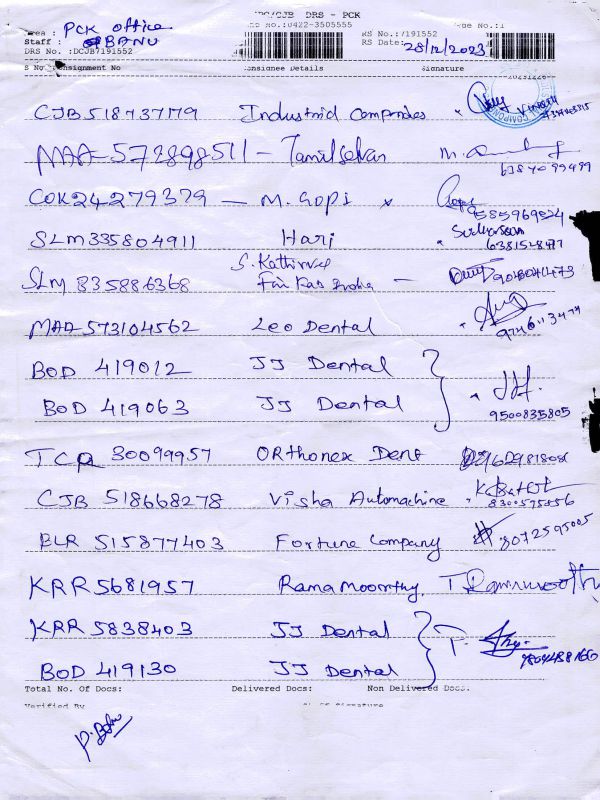 DRS - PCK
Area : PCK Office
Staff : BANU
DRS No. :DCJB7191552
No.:0422-3505555
RS No.:7191552
RS Date: 28/12/2023
Page No.:1
S No Consignment No Consignee Details Signature
CJB 518737179 Industrid
MAA-572898511 - Tamilselvan 6387099499
COK24279379 - M. Gopi x 9585969524
SLM335804911 Hari
SLM 835886368 S. Kathirvel
MAA-573104562 Leo Dental
BOD 419012 JJ Dental
BOD 419063 JJ Dental 9500835805
TCR 30099957 ORthonex Dent
CJB 518668278 Visha Automachine 8300575856
BLR 515877403 Fortune Company 8072595005
KRR 5681957 Rama Moorthy, T. Ramamoorthy
KRR 5838403 JJ Dental
BOD 419130 JJ Dental
Total No. Of Docs: Delivered Docs: Non Delivered Docs:
Verified By Signature
P. Banu